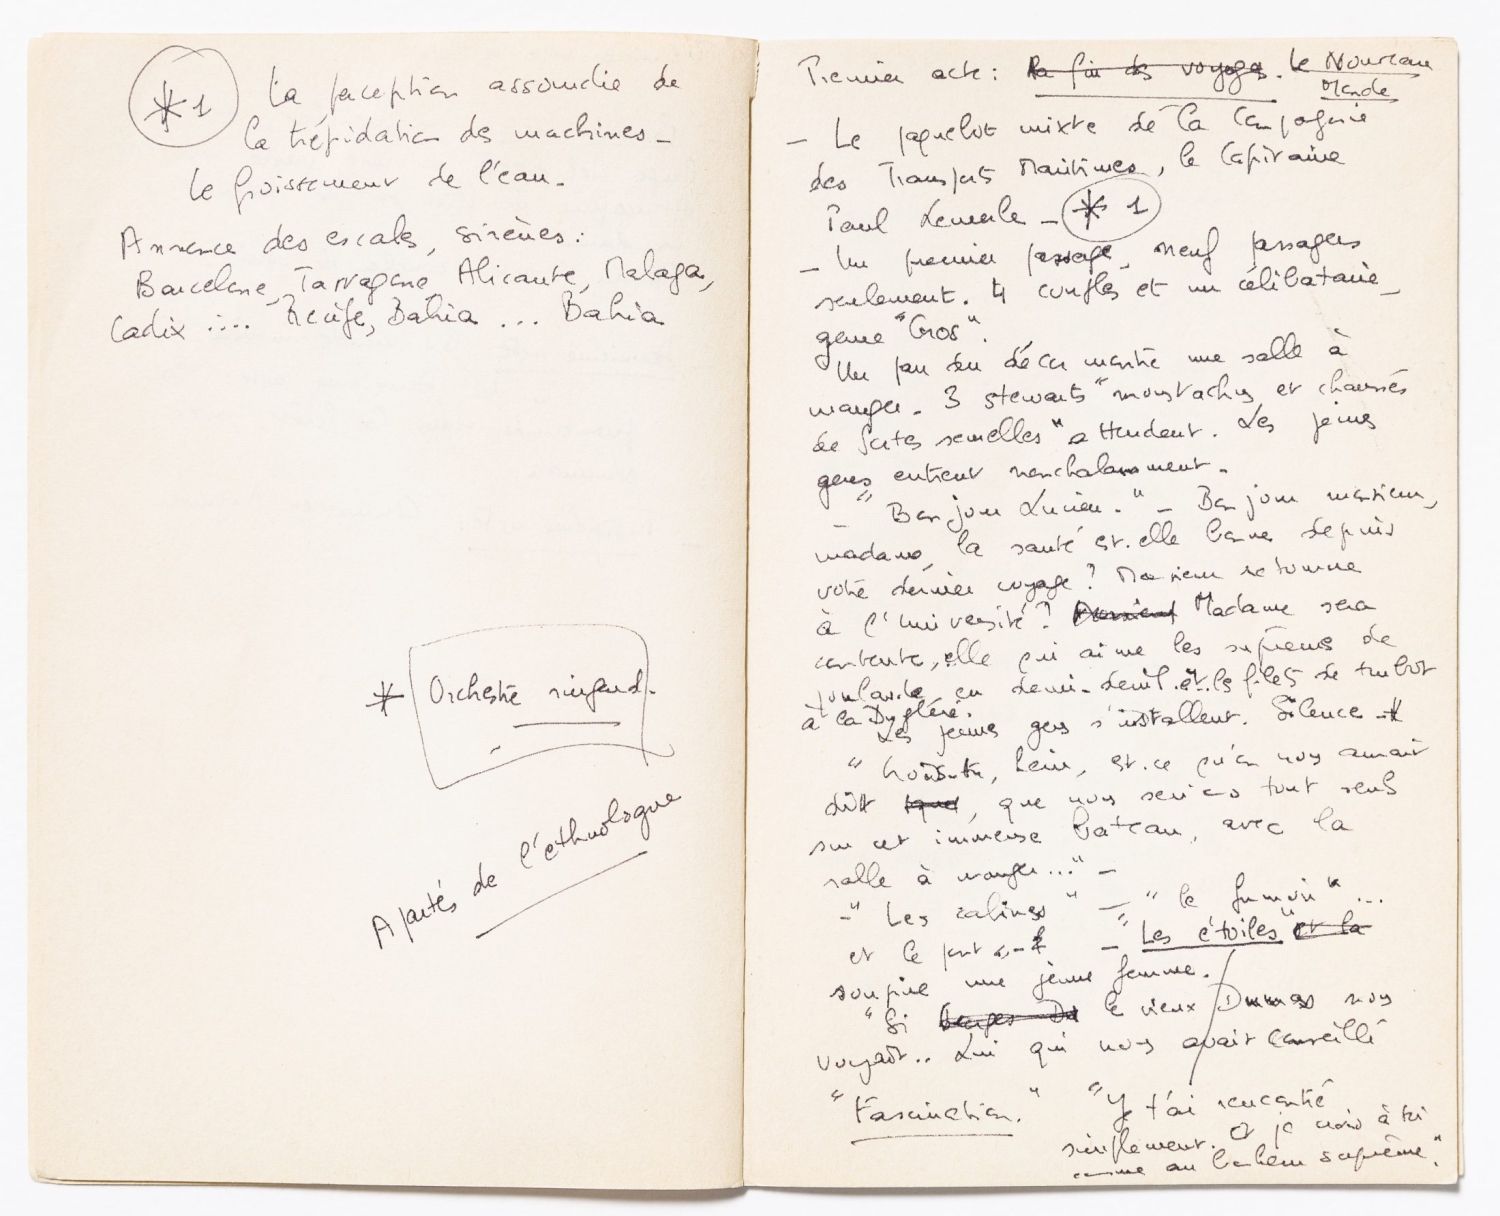 *1 La perception assourdie de
la trépidation des machines –
Le froissement de l'eau.
Annonce des escales, sirènes :
Barcelone, Tarragone, Alicante, Malaga,
Cadix .... Recife, Bahia ... Bahia
* Orchestre ringard.
Apartés de l'ethnologue
Premier acte : la fin des voyages. Le Nouveau
Monde
– Le paquebot mixte de la Compagnie
des Transports Maritimes, le Capitaine
Paul Lemerle – *1
– Un premier passage, neuf passagers
seulement. 4 couples et un célibataire,
genre "Gros".
Un pan du décor montre une salle à
manger. 3 stewarts "moustachus et chaussés
de fortes semelles" attendent. Les jeunes
gens entrent nonchalamment.
– "Bonjour Lucien." – Bonjour monsieur,
madame, la santé est-elle bonne depuis
votre dernier voyage ? Monsieur retourne
à l'Université ? Madame sera
contente, elle qui aime les suprêmes de
poularde en demi-deuil et les filets de turbot
à la Dugléré.
Les jeunes gens s'installent. Silence – *
" hein, est-ce qu'on nous aurait
dit, que nous serions tout seuls
sur cet immense bateau, avec la
salle à manger..." –
– "Les cabines" – "le fumoir"...
et le pont – "Les étoiles" et la
soupire une jeune femme.
"Si le vieux Dumas nous
voyait.. Lui qui nous avait conseillé
"Fascination." "Je t'ai rencontré
simplement. Et je crois à toi
comme au bonheur suprême".